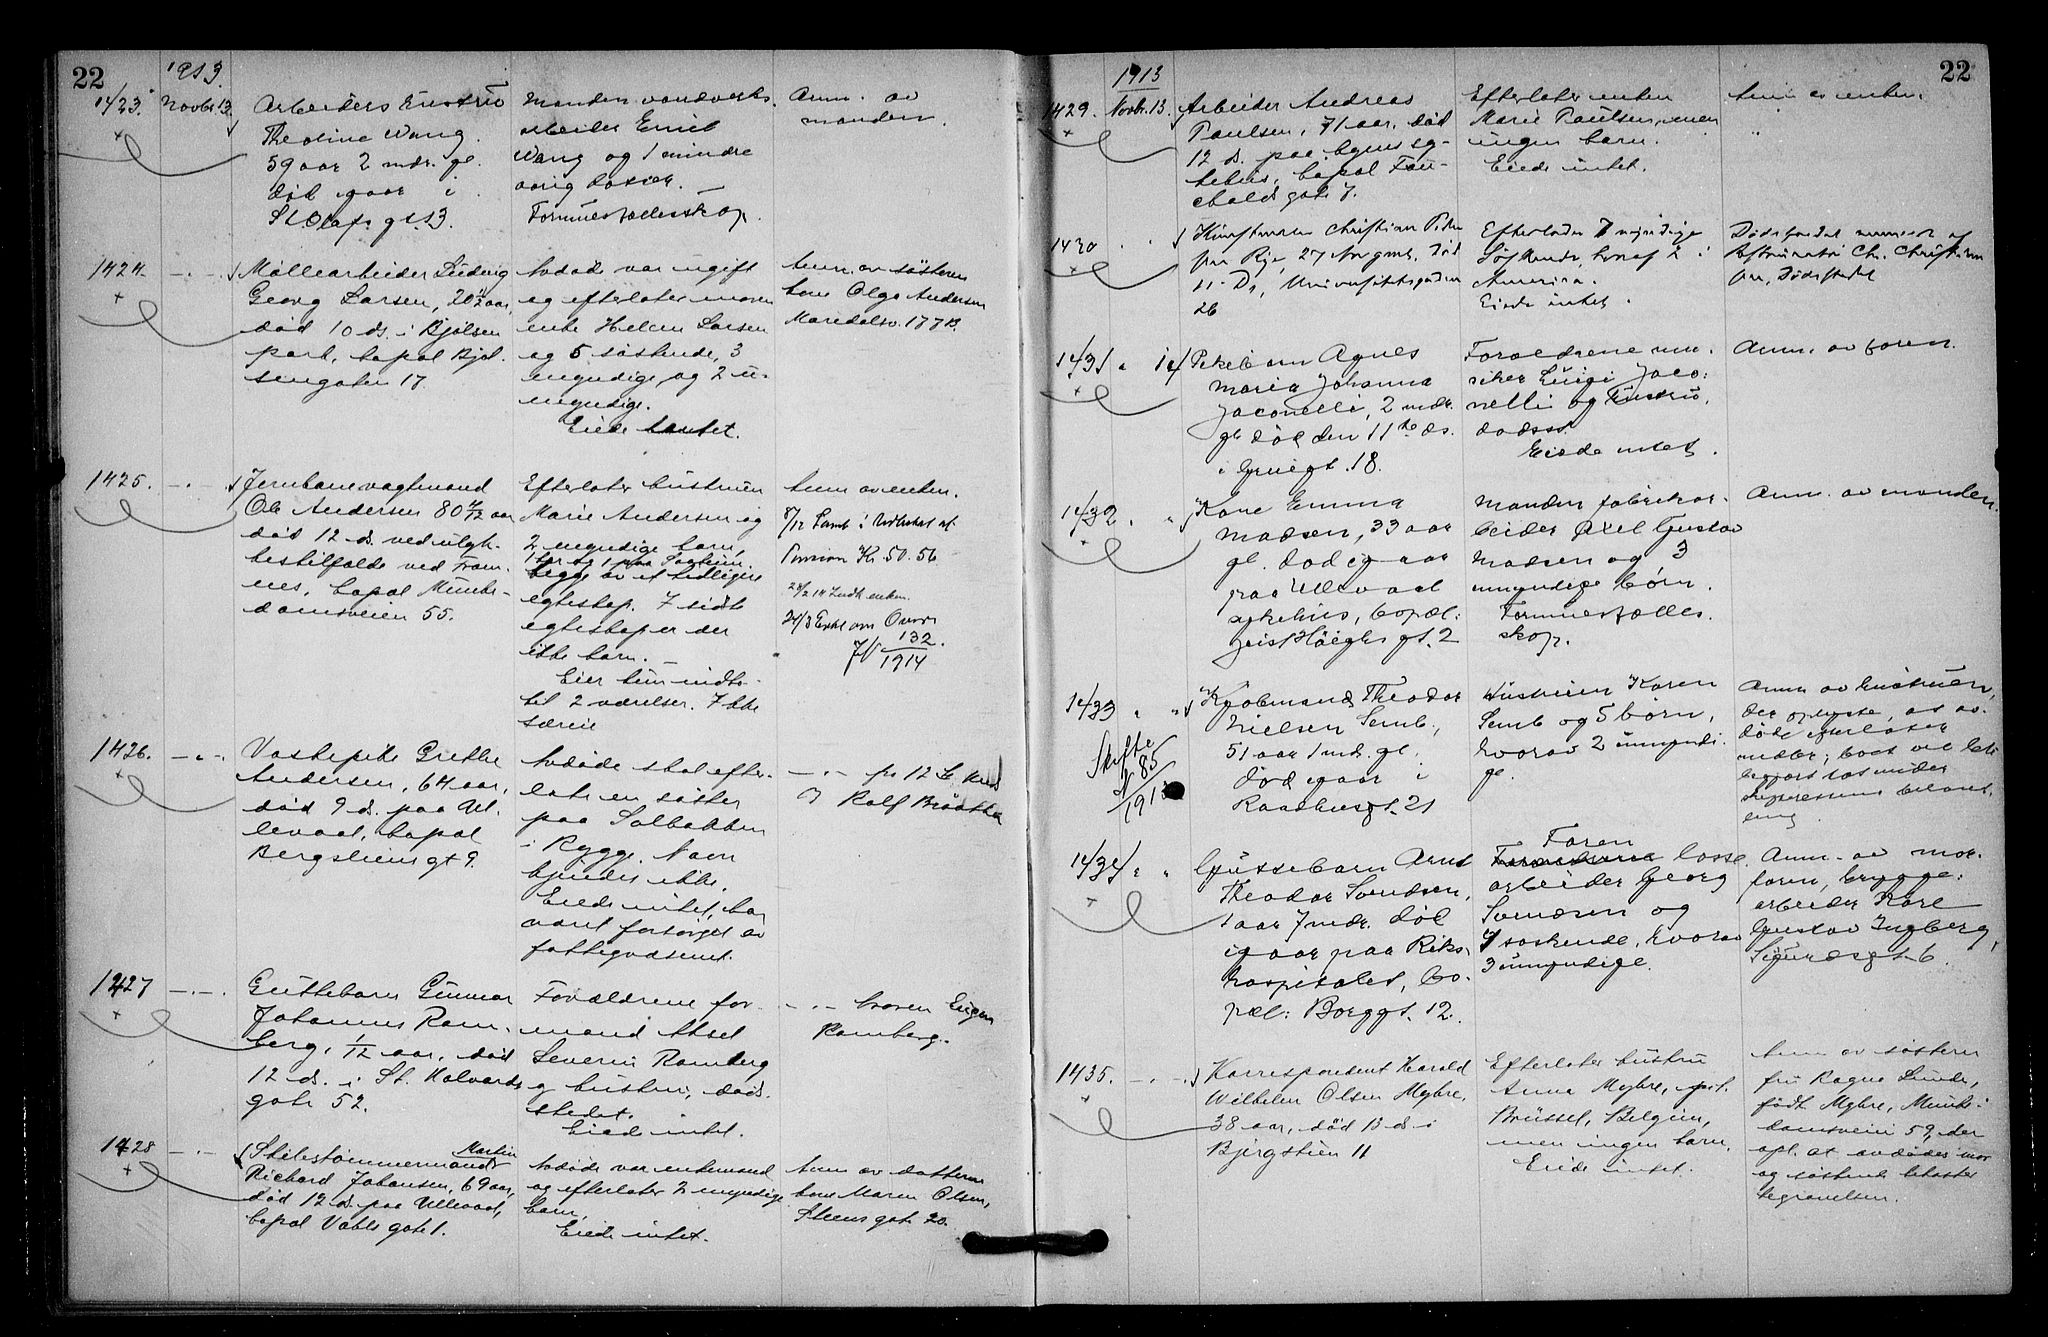 22
1913.
1423. Novbr. 13.
Arbeiders hustru
Theoline Wang.
59 aar 2 mdr. gl.
død igaar i
St. Olafs gt. 13.
Manden vandverks-
arbeider
Wang og 1 mindre
aarig datter.
Formuesfællesskap.
Anm. av
manden.
1424.
Møllearbeider Ludvig
Georg Larsen, 20 aar,
død 10 ds. i Bjølsen
park, bopæl Bjøl-
sengaten 17.
Avdøde var ugift
og efterlater moren
enke Helene Larsen
og 5 søskende, 3
myndige og 2 u-
myndige.
Eiede intet.
Anm. av søsteren
frue Olga Andersen
Maridalsv. 177 B.
1425.
Jernbanevagtmand
Ole Andersen 80 aar
død 12 ds. ved ulyk-
kestilfælde ved
bopæl Munke-
damsveien 55.
Efterlater hustruen
Marie Andersen og
2 myndige barn,
begge av et tidligere
egteskap. I sidste
egteskap er der
ikke barn.
Eier kun indbo
til 2 værelser. Ikke
særeie
Anm. av enken.
Pension Kr. 50.56
132
1914
1426.
Vaskepike Grethe
Andersen, 64 aar,
død 9 ds. paa Ul-
levaal, bopæl
Bergsliens gt 9.
Avdøde skal efter-
late en søster
paa Solbakken
i Rygge. Navn
kjendes ikke.
Eiede intet, har
været forsørget av
fattigvæsenet.
Rolf
1427
Guttebarn Gunnar
Johannes Ram-
berg, 1/12 aar, død
12 ds. i St. Halvards
gate 52.
Forældrene for-
mand Aksel
Severin Ramberg
og hustru, døds-
stedet.
Eiede intet.
broren Eugen
Ramberg.
1428
Skibstømmermand Martin
Richard Johansen, 69 aar,
død 12 ds. paa Ullevaal,
bopæl Vahls gate 1.
Avdøde var enkemand
og efterlater 2 myndige
barn.
Eiede intet.
Anm. av datteren
frue Maren Olsen,
Steens gate 20.
22
1913
1429. Novbr. 13.
Arbeider Andreas
Paulsen, 71 aar, død
12 ds. paa byens sy-
kehus, bopæl Fau-
chalds gate 7.
Efterlater enken
Marie Paulsen, men
ingen barn.
Eiede intet.
Anm. av enken.
1430
Christian
Rye, 27 død
11 ds, Universitetsgaden
26
Efterlader 7 myndige
Søskende, hvoraf 2 i
Amerika.
Eiede intet.
Dødsfaldet anmeldt af
Ch. Christian
Dødsstedet
1431 " 14
Pikebarn Agnes
Maria Johanna
Jaconelli, 2 mdr.
gl. død den 11te ds.
i Grünigt. 18.
Forældrene mu-
siker Luigi Jaco-
nelli og hustru,
dødsst.
Eiede intet.
Anm. av faren.
1432
Kone Emma
Madsen, 33 aar
gl. død igaar
paa Ullevaal
sykehus, bopæl:
Geist Høighs gt. 2
Manden fabrikar-
beider Axel Gustav
Madsen og 3
umyndige børn.
Formuesfælles-
skap.
Anm. av manden.
1433
Skifte
N 85
1913
Kjøbmand Theodor
Nielsen Semb,
51 aar 1 md. gl.
død igaar i
Raadhusgt. 21
Hustruen Karen
Semb og 5 børn,
hvorav 2 umyndi-
ge.
Anm. av hustruen,
der oplyste, at av-
døde efterlater
midler;
1434
Guttebarn Arnt
Theodor Svendsen,
1 aar 7 mdr. død
igaar paa Riks-
hospitalet, bo-
pæl: Borggt. 12.
Faren
Forældrene losse-
arbeider Georg
Svendsen og
4 søskende, hvorav
3 umyndige.
Anm. av mor-
faren, brygge-
arbeider Karl
Gustav Ingberg,
Sigurdsgt. 6.
1435.
Korrespondent Harald
Wilhelm Olsen Myhre,
38 aar, død 13 ds i
Bjergstien 11
Efterlater hustru
Anna Myhre,
Brüssel, Belgien,
men ingen barn.
Eiede intet.
Anm. av søsteren
fru Ragna Lunde,
født Myhre, Munke-
damsveien 59, der
opl. at avdødes mor
og søstre bekoster
begravelsen.